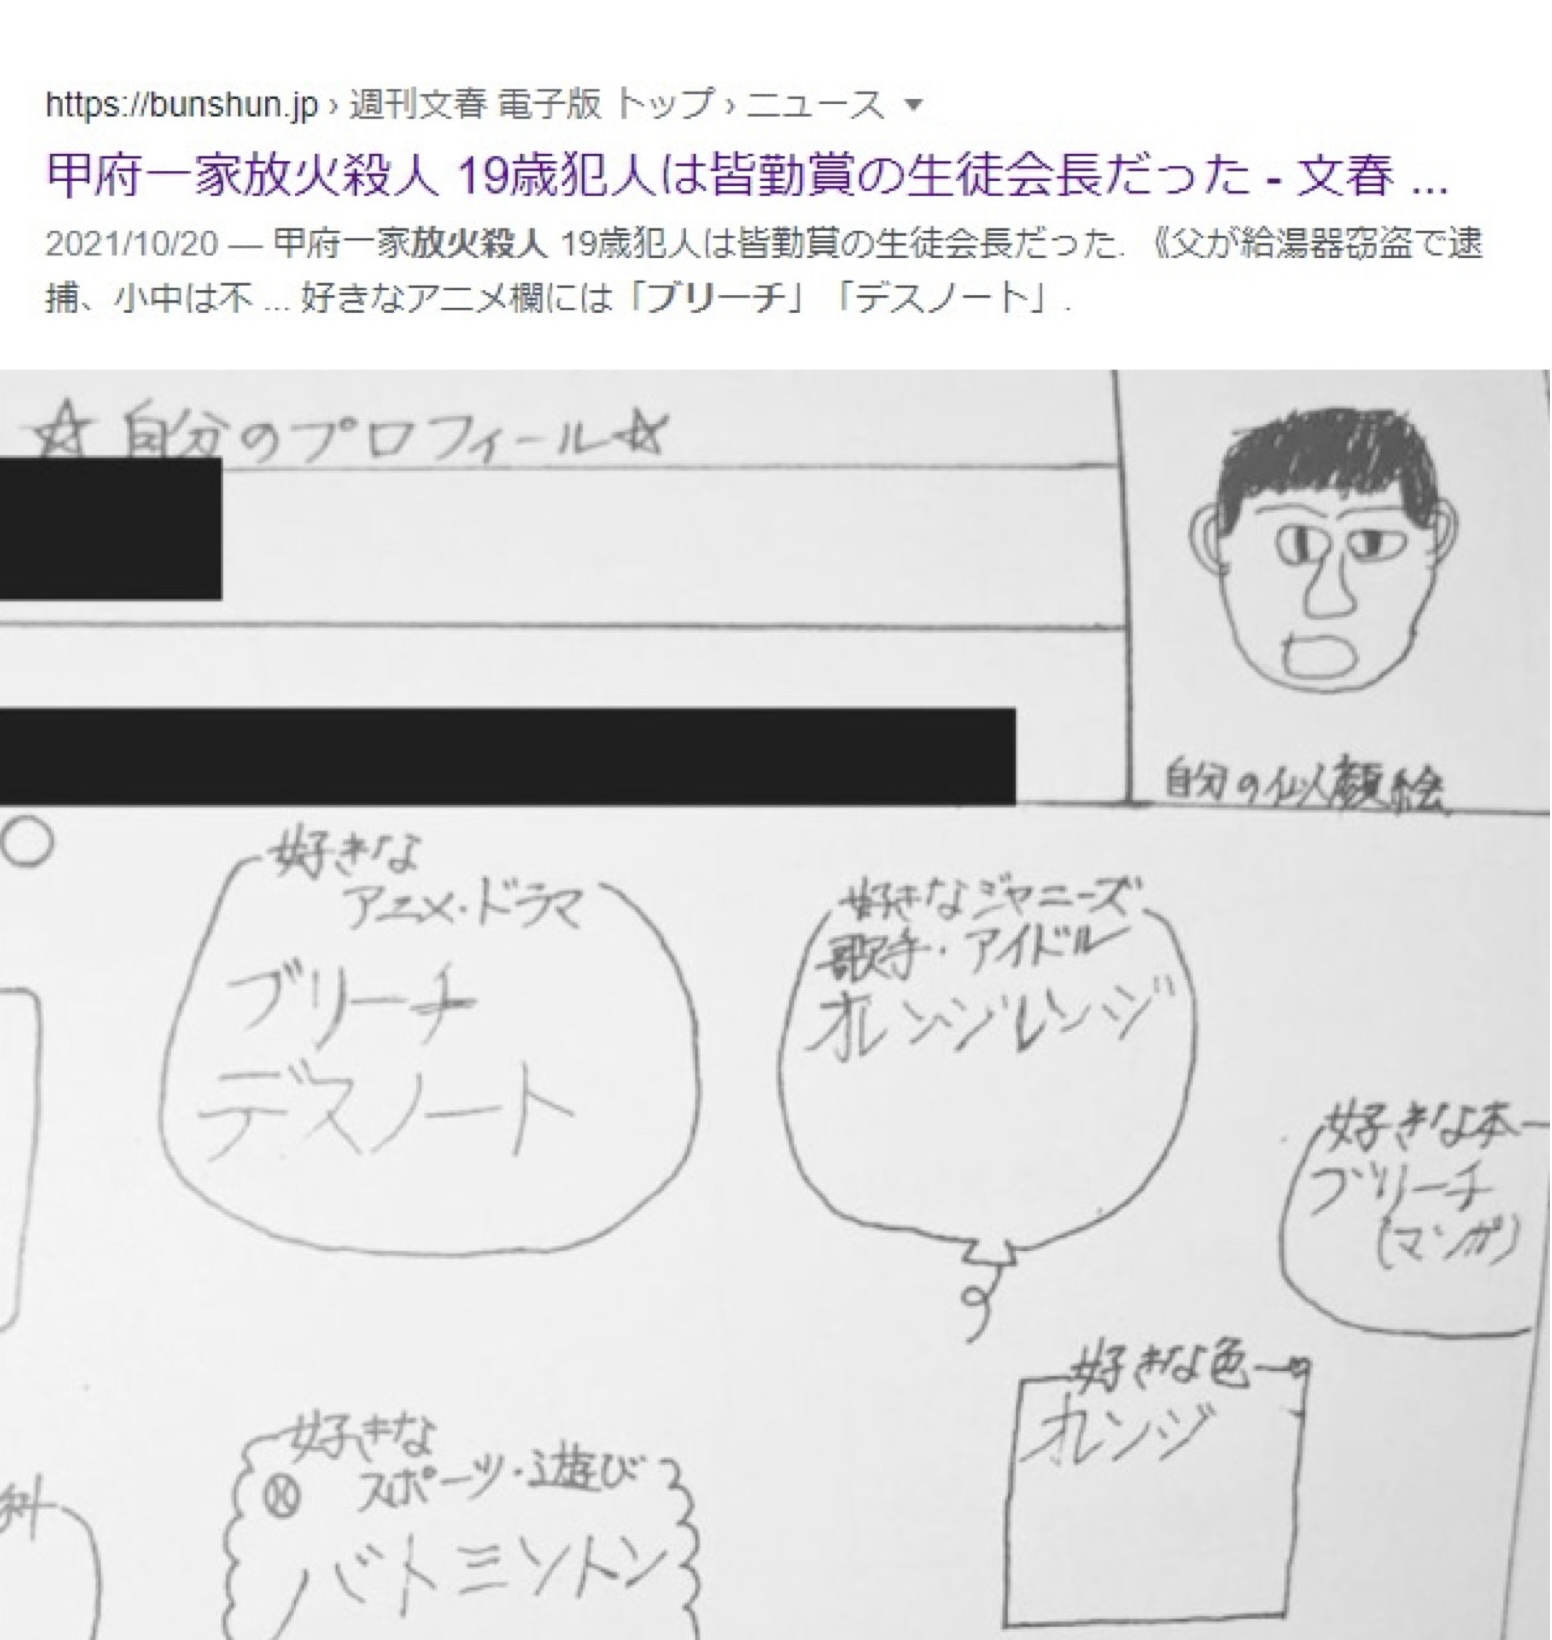 https://bunshun.jp › 週刊文春 電子版 トップ › ニュース
甲府一家放火殺人 19歳犯人は皆勤賞の生徒会長だった - 文春 ...
2021/10/20 — 甲府一家放火殺人 19歳犯人は皆勤賞の生徒会長だった. 《父が給湯器窃盗で逮
捕、小中は不 ... 好きなアニメ欄には「ブリーチ」「デスノート」.
☆ 自分のプロフィール☆
自分の似顔絵
好きな
アニメ・ドラマ
ブリーチ
デスノート
好きなジャニーズ
歌手・アイドル
オレンジレンジ
好きな本
ブリーチ
(マンガ)
好きな色
オレンジ
好きな
スポーツ・遊び
バトミントン
科